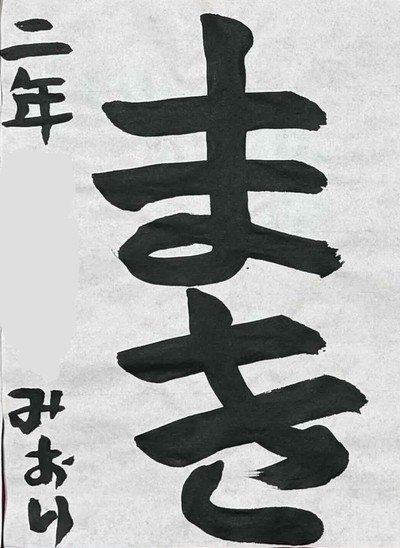 まき
二年 みおり